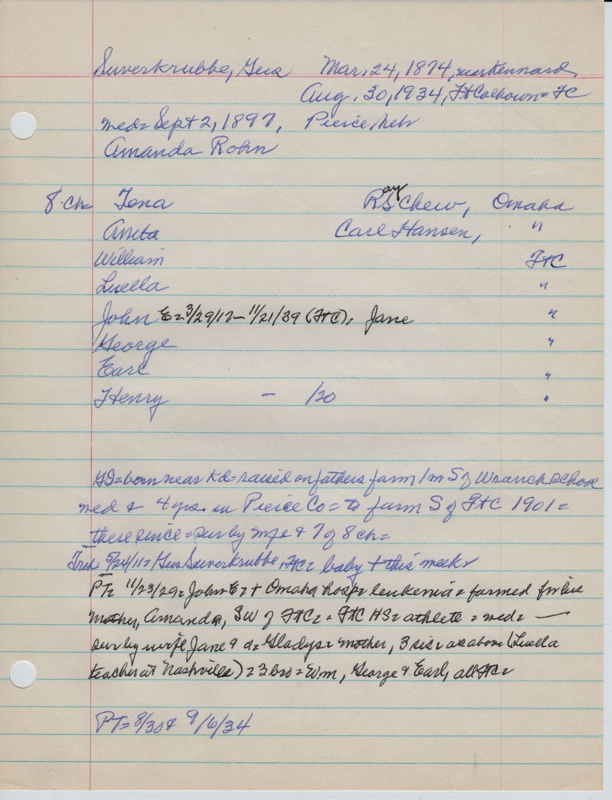 Suverkrubbe, Gus Mar. 24, 1874, near Kennard,
Aug. 30, 1934, Ft Calhoun = FC
med = Sept 2, 1897, Pierce, Neb
Amanda Rohn
8 ch = Tena Ray S Chew, Omaha
Anita Carl Hansen, "
William FtC
Luella "
John E = 3/29/17 – 11/21/39 (FtC), Jane "
George "
Earl "
Henry – /20 "
HS = born near Kd = raised on fathers farm 1 m S of School
med & 4 yrs. in Pierce Co = to farm S of FtC 1901 =
there since = sur by wife & 7 of 8 ch =
Trib 5/24/11 = Gus Suverkrubbe, FtC = baby + this week
PT = 11/23/ = John E = + Omaha hosp = leukemia = farmed for
mother, Amanda, SW of FtC = FtC HS = athlete = med = —
sur by wife Jane & d = Gladys = mother, 3 sis = as above (Luella
teacher at Nashville) = 3 bro = Wm, George & Earl, all FtC =
PT = 8/30 & 9/6/34